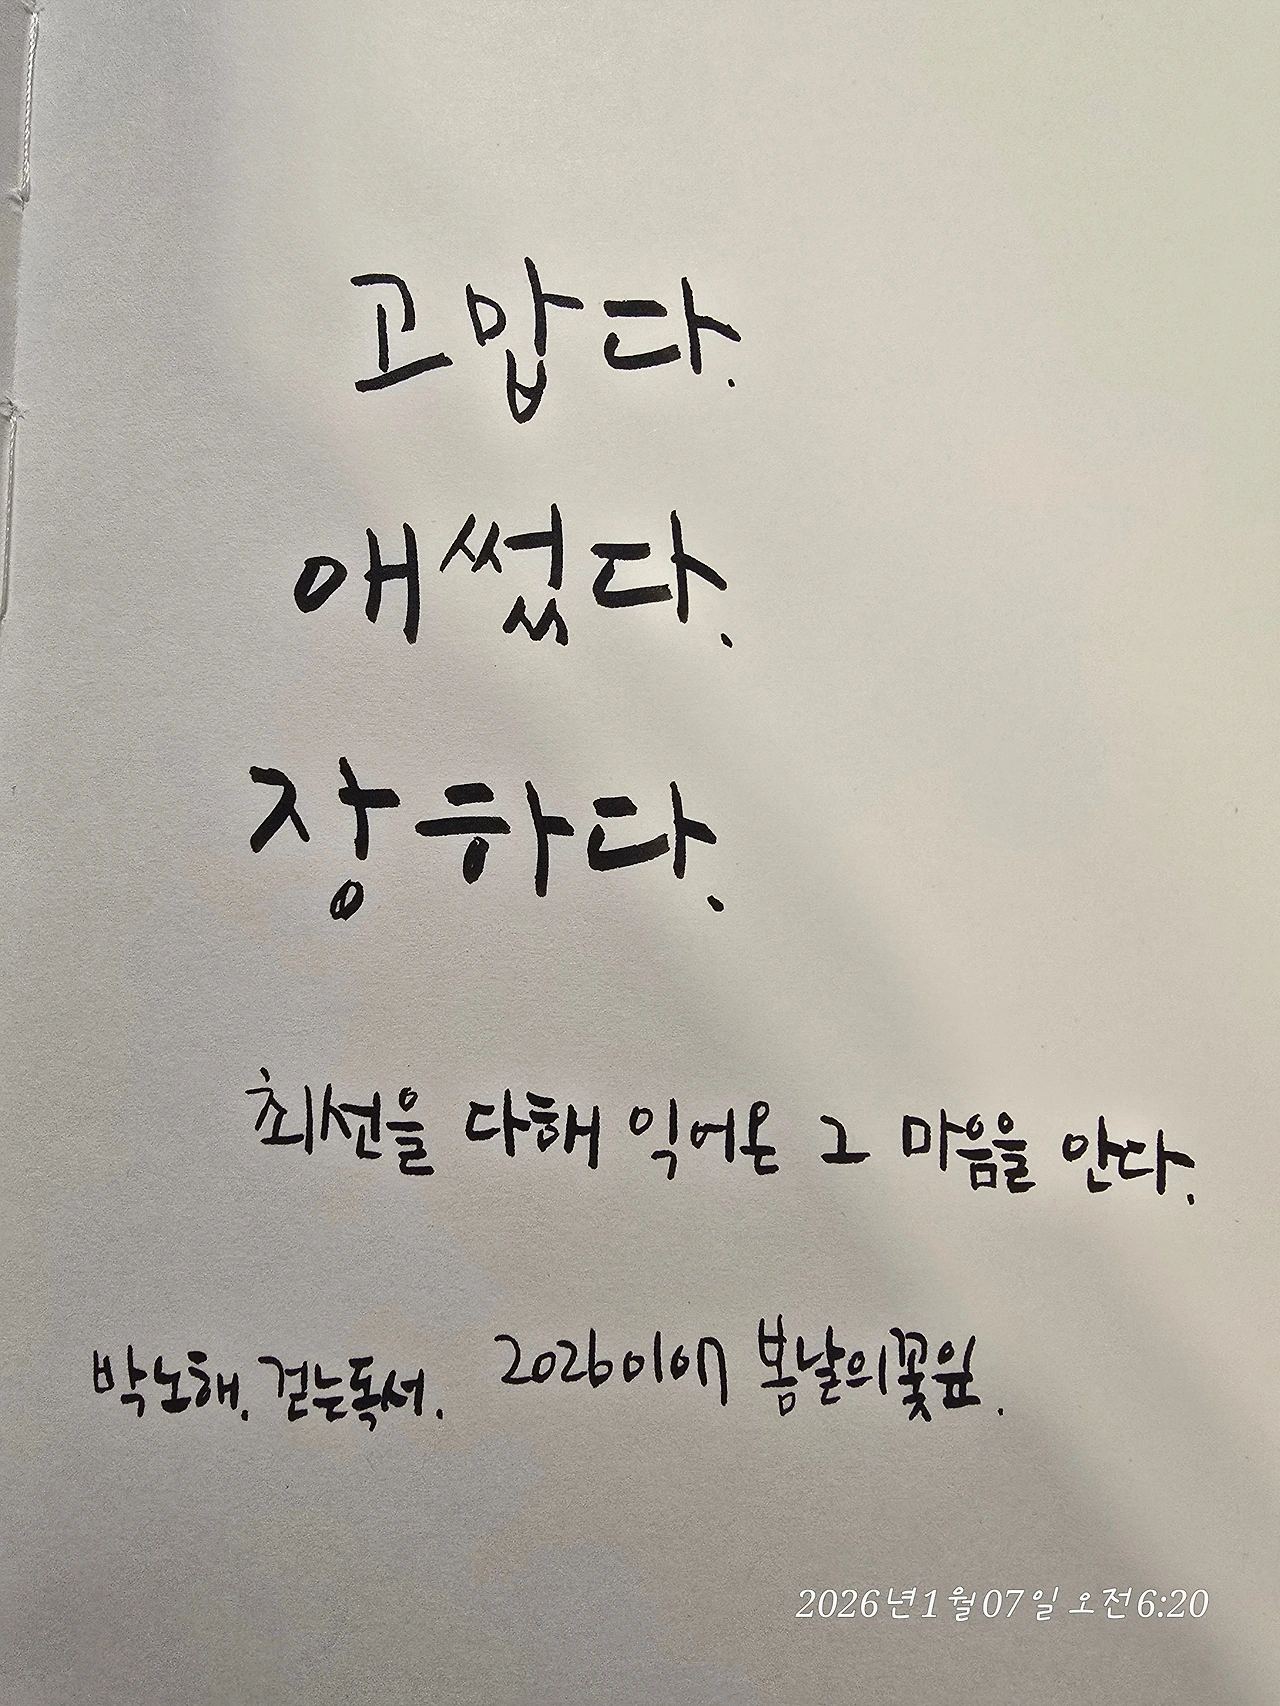 고맙다.
애썼다.
장하다.
최선을 다해 익어온 그 마음을 안다.
박노해. 걷는독서. 20260107 봄날의꽃잎.
2026년1월07일 오전6:20